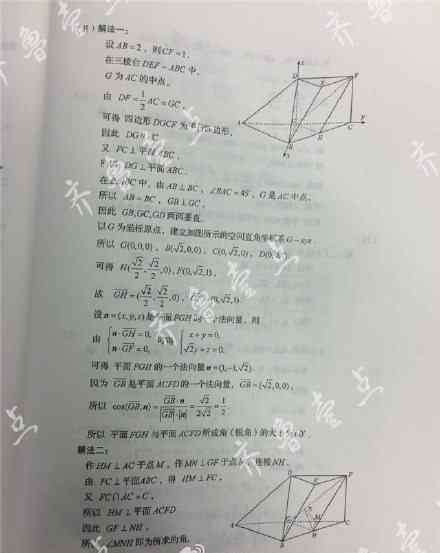 解法一：
设 AB=2，则 CF=1.
在三棱台 DEF-ABC 中，
G 为 AC 的中点.
由 DF=1/2 AC=GC，
可得 四边形 DGCF 为平行四边形，
因此 DG∥FC
又 FC⊥平面 ABC，
所以 DG⊥平面 ABC.
在 ABC 中，由 AB⊥BC，∠BAC=45°，G 是 AC 中点，
所以 AB=BC，GB⊥GC，
因此 GB,GC,GD 两两垂直.
以 G 为坐标原点，建立如图所示的空间直角坐标系 G-xyz
所以 G(0,0,0)，B(√2,0,0)，C(0,√2,0)，D(0,0,1)
可得 H(√2/2, √2/2, 0)，F(0,√2,1)，
故 GH=(√2/2, √2/2, 0)，GF=(0,√2,1).
设 n=(x,y,z) 是平面 FGH 的一个法向量，则
由 { n·GH=0, n·GF=0, 可得 { x+y=0, √2y+z=0.
可得 平面 FGH 的一个法向量 n=(1,-1,√2).
因为 GB 是平面 ACFD 的一个法向量，GB=(√2,0,0)，
所以 cos⟨GB,n⟩= GB·n/|GB|·|n| = √2/2√2 = 1/2.
所以 平面 FGH 与平面 ACFD 所成角（锐角）的大小为60°.
解法二：
作 HM⊥AC 于点 M，作 MN⊥GF 于点 N，连接 NH.
由 FC⊥平面ABC，得 HM⊥FC，
又 FC∩AC=C，
所以 HM⊥平面 ACFD
因此 GF⊥NH，
所以 ∠MNH 即为所求的角.
齐鲁壹点